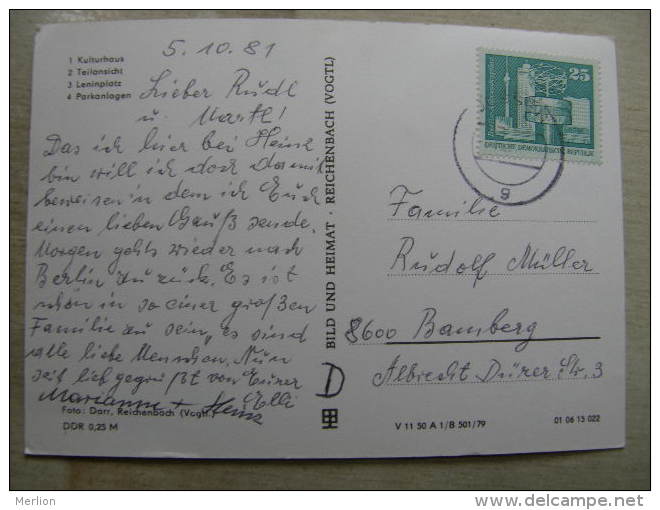 1 Kulturhaus
2 Teilansicht
3 Leninplatz
4 Parkanlagen
5.10.81
Lieber Rudl
u. Martl!
Das ich hier bei Heinz
bin will ich doch damit
beweisen in dem ich Euch
einen lieben Gruß sende.
Morgen gehts wieder nach
Berlin zurück. Es ist
schön in so einer großen
Familie zu sein, es sind
alle liebe Menschen. Nun
seit lieb gegrüßt von Eurer
Elli
Marianne + Heinz
Foto: Darr, Reichenbach (Vogtl.)
DDR 0,25 M
BILD UND HEIMAT · REICHENBACH (VOGTL)
25
DEUTSCHE DEMOKRATISCHE REPUBLIK
g
Familie
Rudolf Müller
8600 Bamberg
Albrecht Dürer Str. 3
D
V 11 50 A 1/B 501/79
01 06 15 022
Merlion
www.delcampe.net